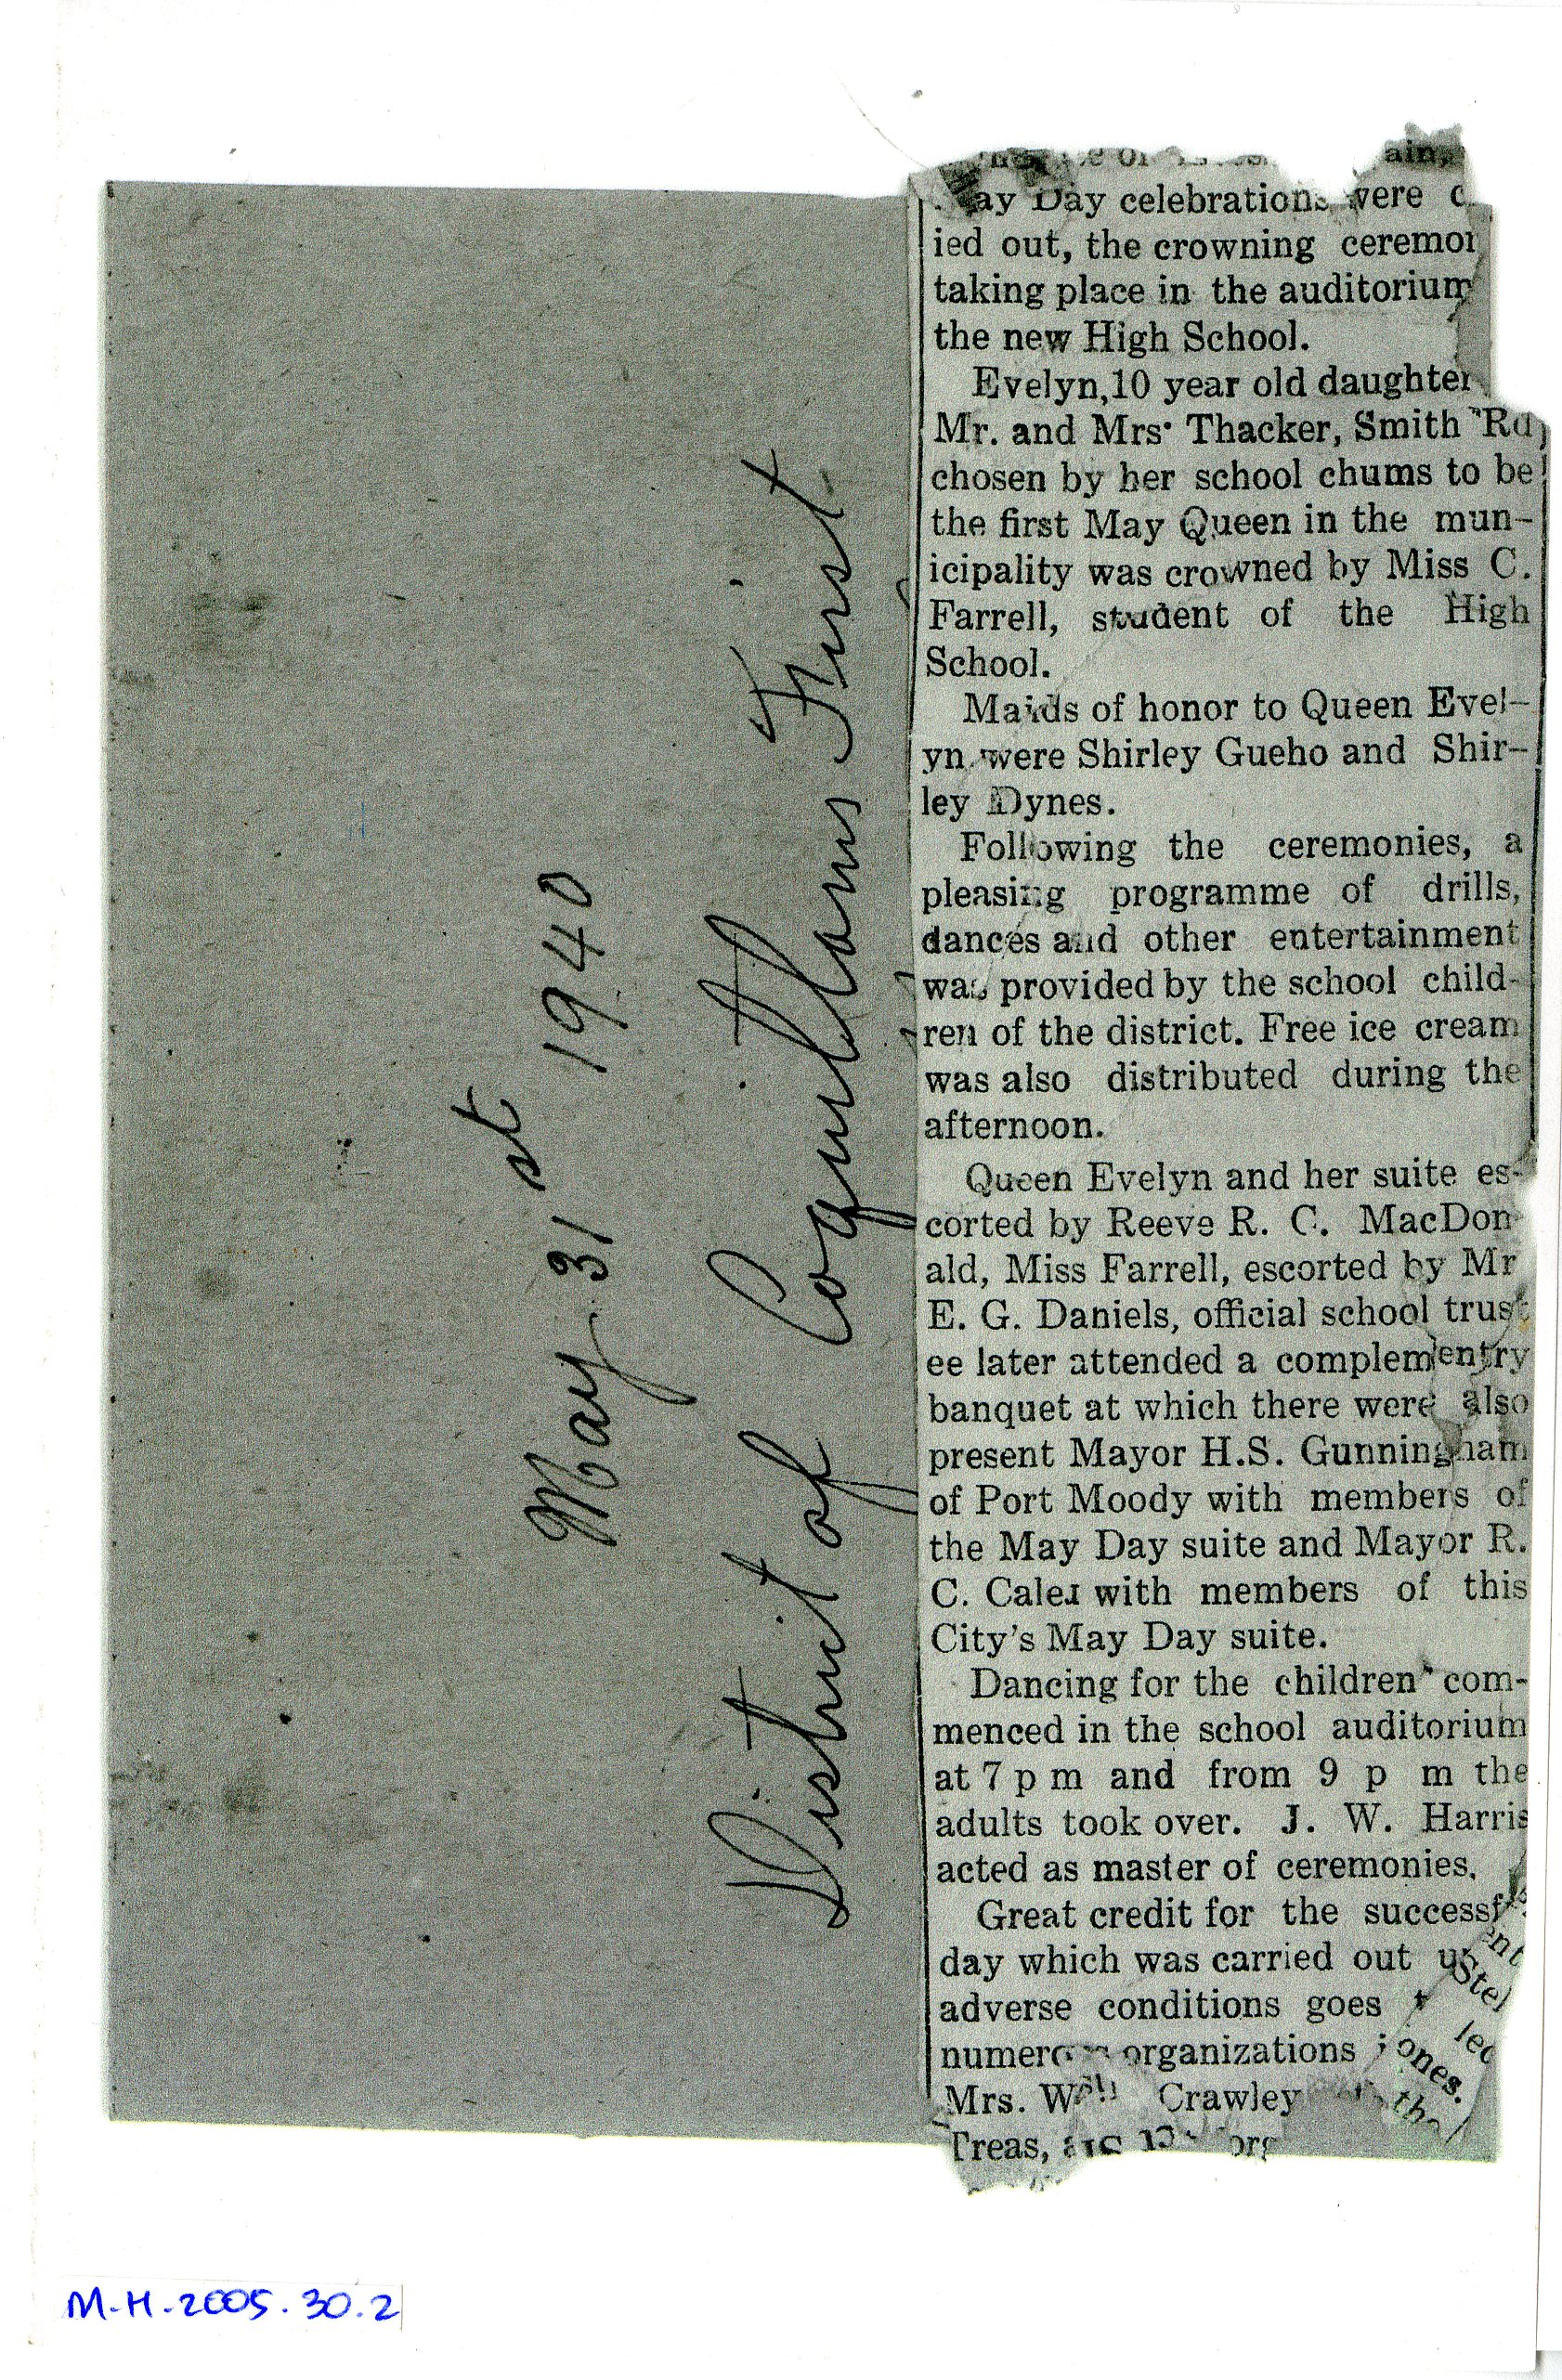 May 31 st 1940
District of Coquitlams First
ain,
ay Day celebrations were
ied out, the crowning
taking place in the auditorium
the new High School.
Evelyn, 10 year old daughter
Mr. and Mrs. Thacker, Smith Rd
chosen by her school chums to be
the first May Queen in the mun-
icipality was crowned by Miss C.
Farrell, student of the High
School.
Maids of honor to Queen Evel-
yn were Shirley Gueho and Shir-
ley Dynes.
Following the ceremonies, a
pleasing programme of drills,
dances and other entertainment
was provided by the school child-
ren of the district. Free ice cream
was also distributed during the
afternoon.
Queen Evelyn and her suite es-
corted by Reeve R. C. MacDon-
ald, Miss Farrell, escorted by Mr
E. G. Daniels, official school trust
ee later attended a complementry
banquet at which there were also
present Mayor H.S. Gunningham
of Port Moody with members of
the May Day suite and Mayor R.
C. Caler with members of this
City's May Day suite.
Dancing for the children com-
menced in the school auditorium
at 7 p m and from 9 p m the
adults took over. J. W. Harris
acted as master of ceremonies.
Great credit for the successf
day which was carried out
adverse conditions goes
numerous organizations
Mrs. Crawley
Treas,
ones.
M.H.2005.30.2